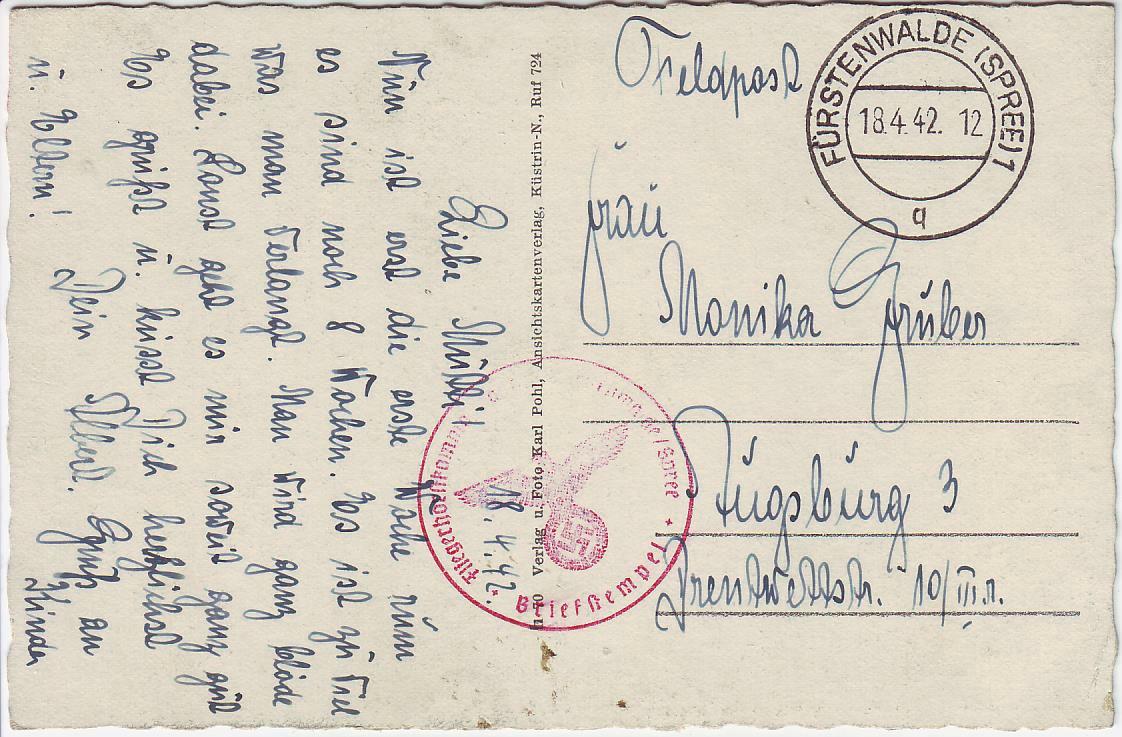 18.4.42.
Liebe Mutti!
Nun ist erst die erste Woche rum
es sind noch 8 Wochen. Es ist zu viel
was man verlangt. Man wird ganz blöde
dabei. Sonst geht es mir soweit ganz gut
Es grüßt u. küsst Dich herzlichst
Dein Albert. Gruß an Kinder
u. Eltern!
70 Verlag u. Foto Karl Pohl, Ansichtskartenverlag, Küstrin-N., Ruf 724
Feldpost
FÜRSTENWALDE (SPREE) 1
18.4.42. 12
q
Frau
Monika Gruber
Augsburg 3
Frentwettstr. 10/III r.
Briefstempel